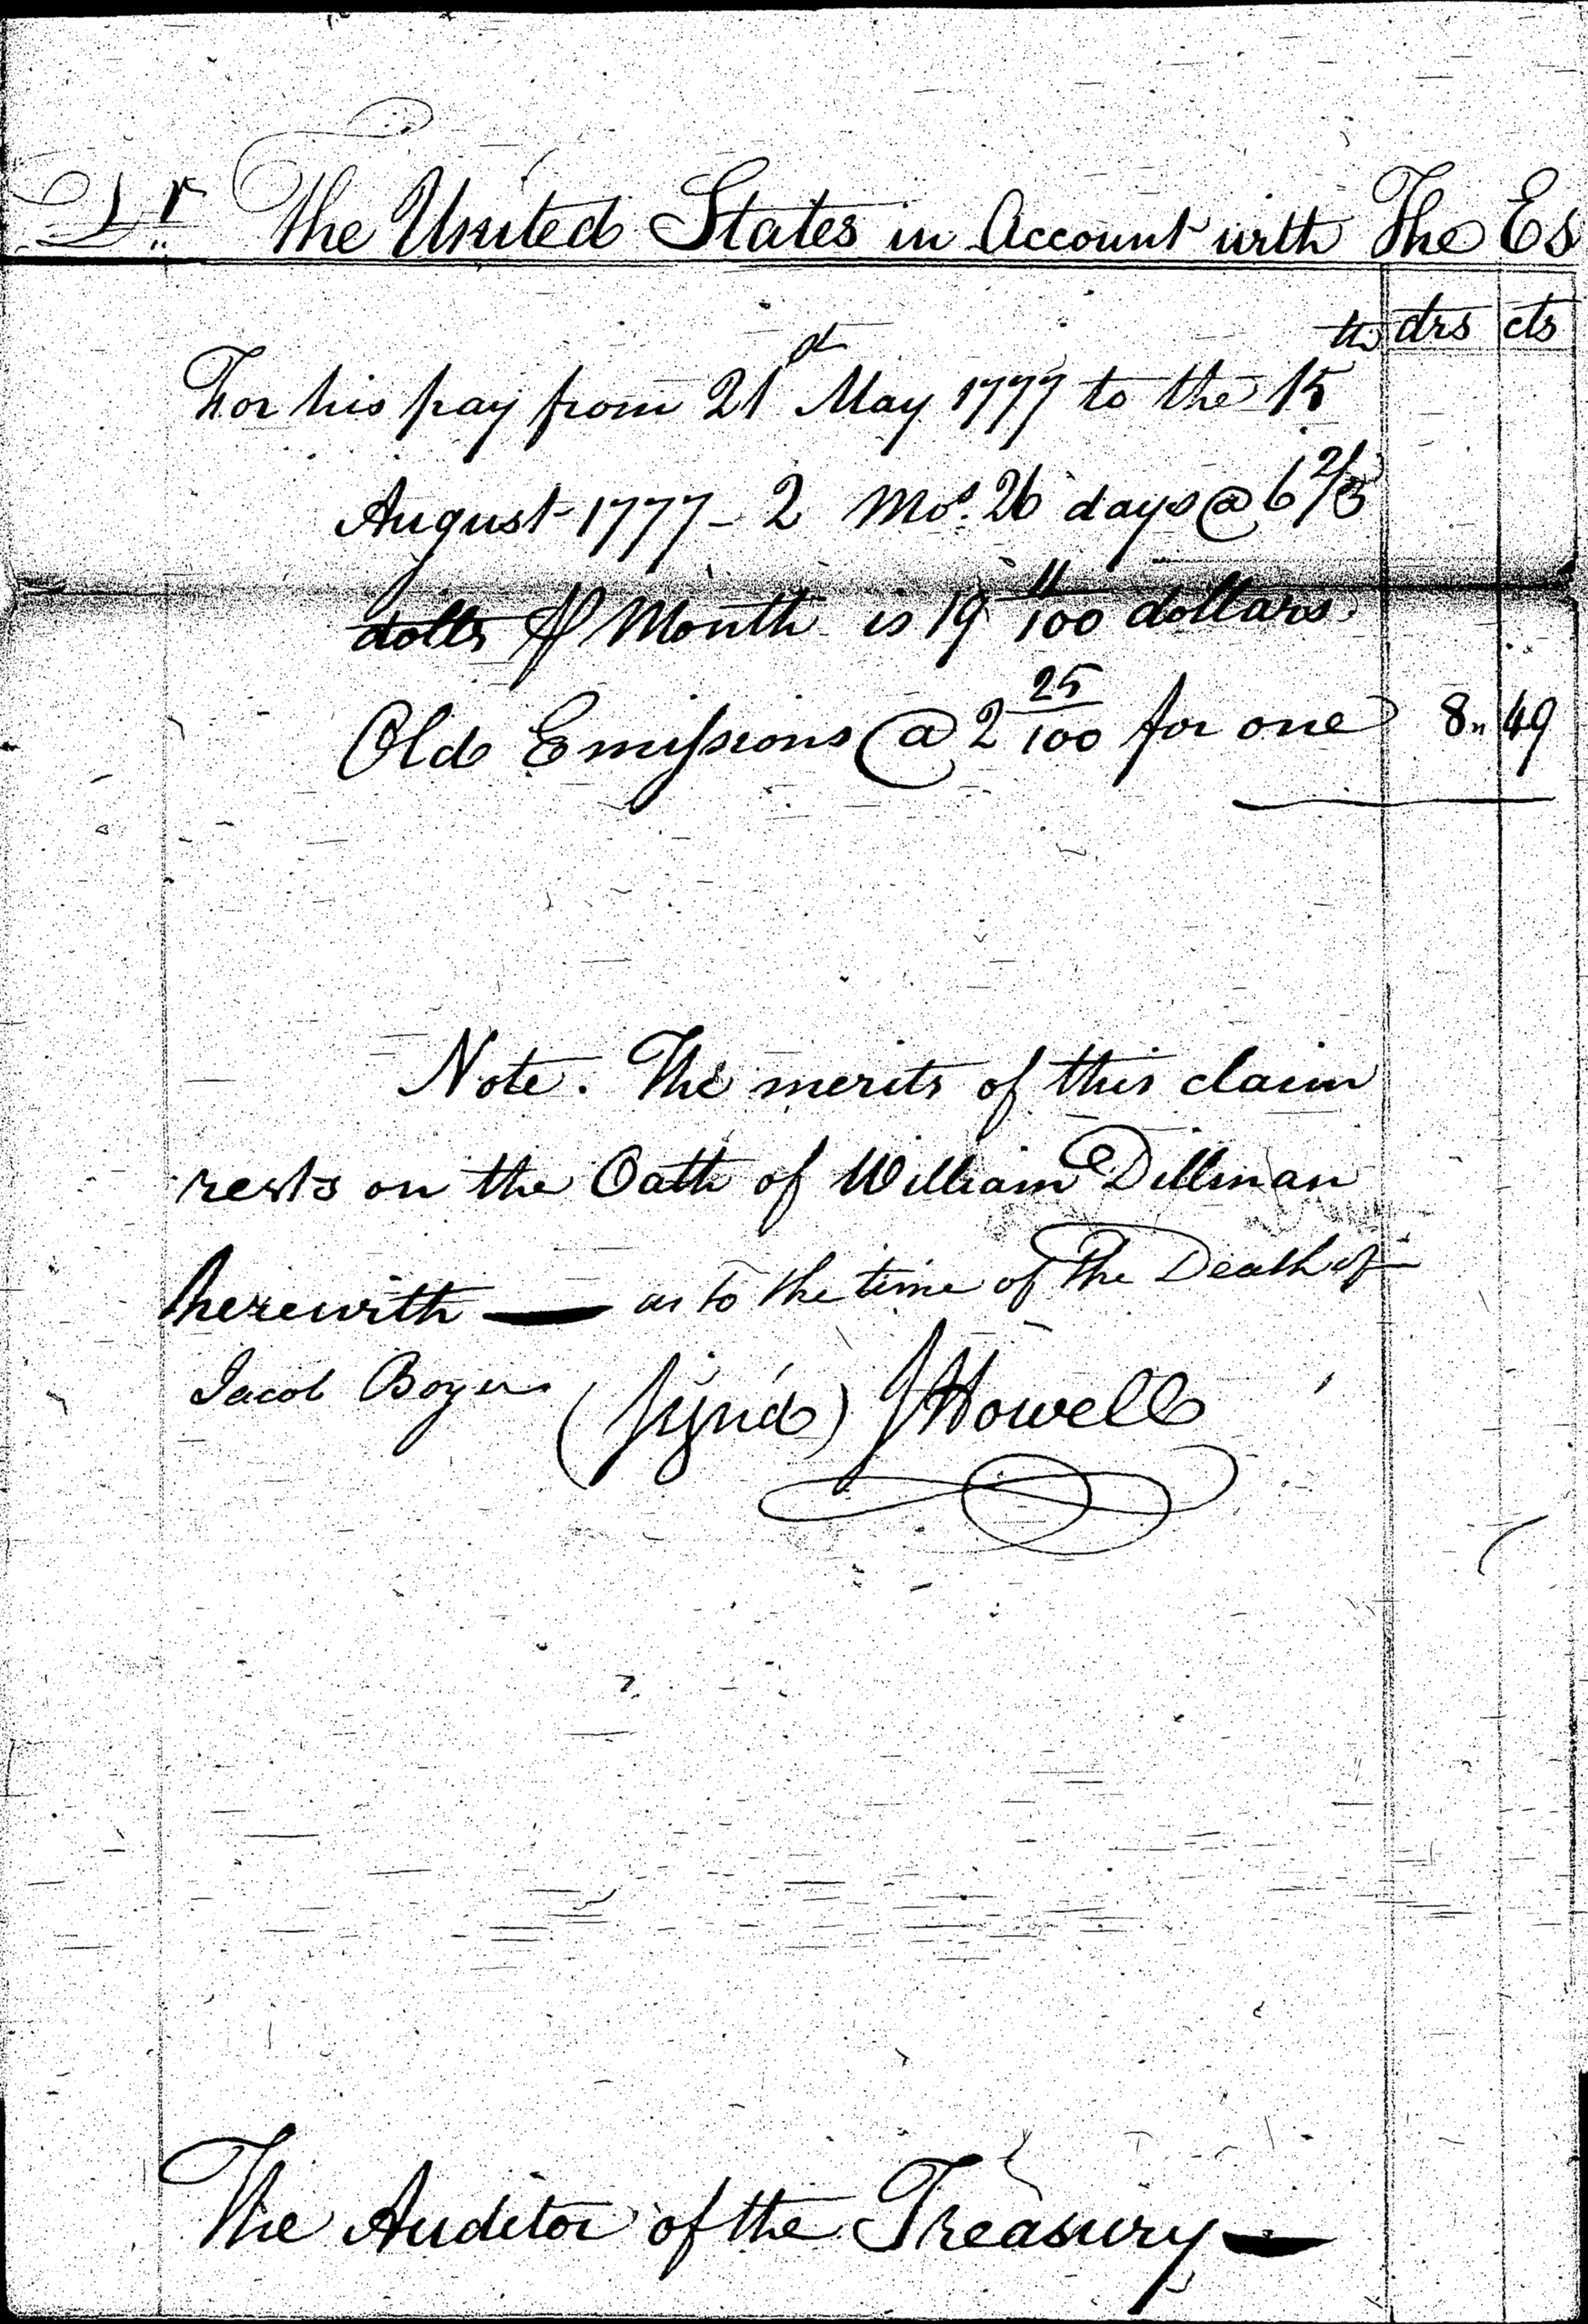 Dr The United States in Account with The Es
drs cts
For his pay from 21st May 1777 to the 15th
August 1777 - 2 Mos. 26 days @ 6 2/3
dolls ⅌ Month is 19 11/100 dollars
Old Emissions @ 2 25/100 for one 8" 49
Note. The merits of this claim
rests on the Oath of William Dillman
herewith — as to the time of The Death of
Jacob Boyer (sign'd) J Howell
The Auditor of the Treasury —